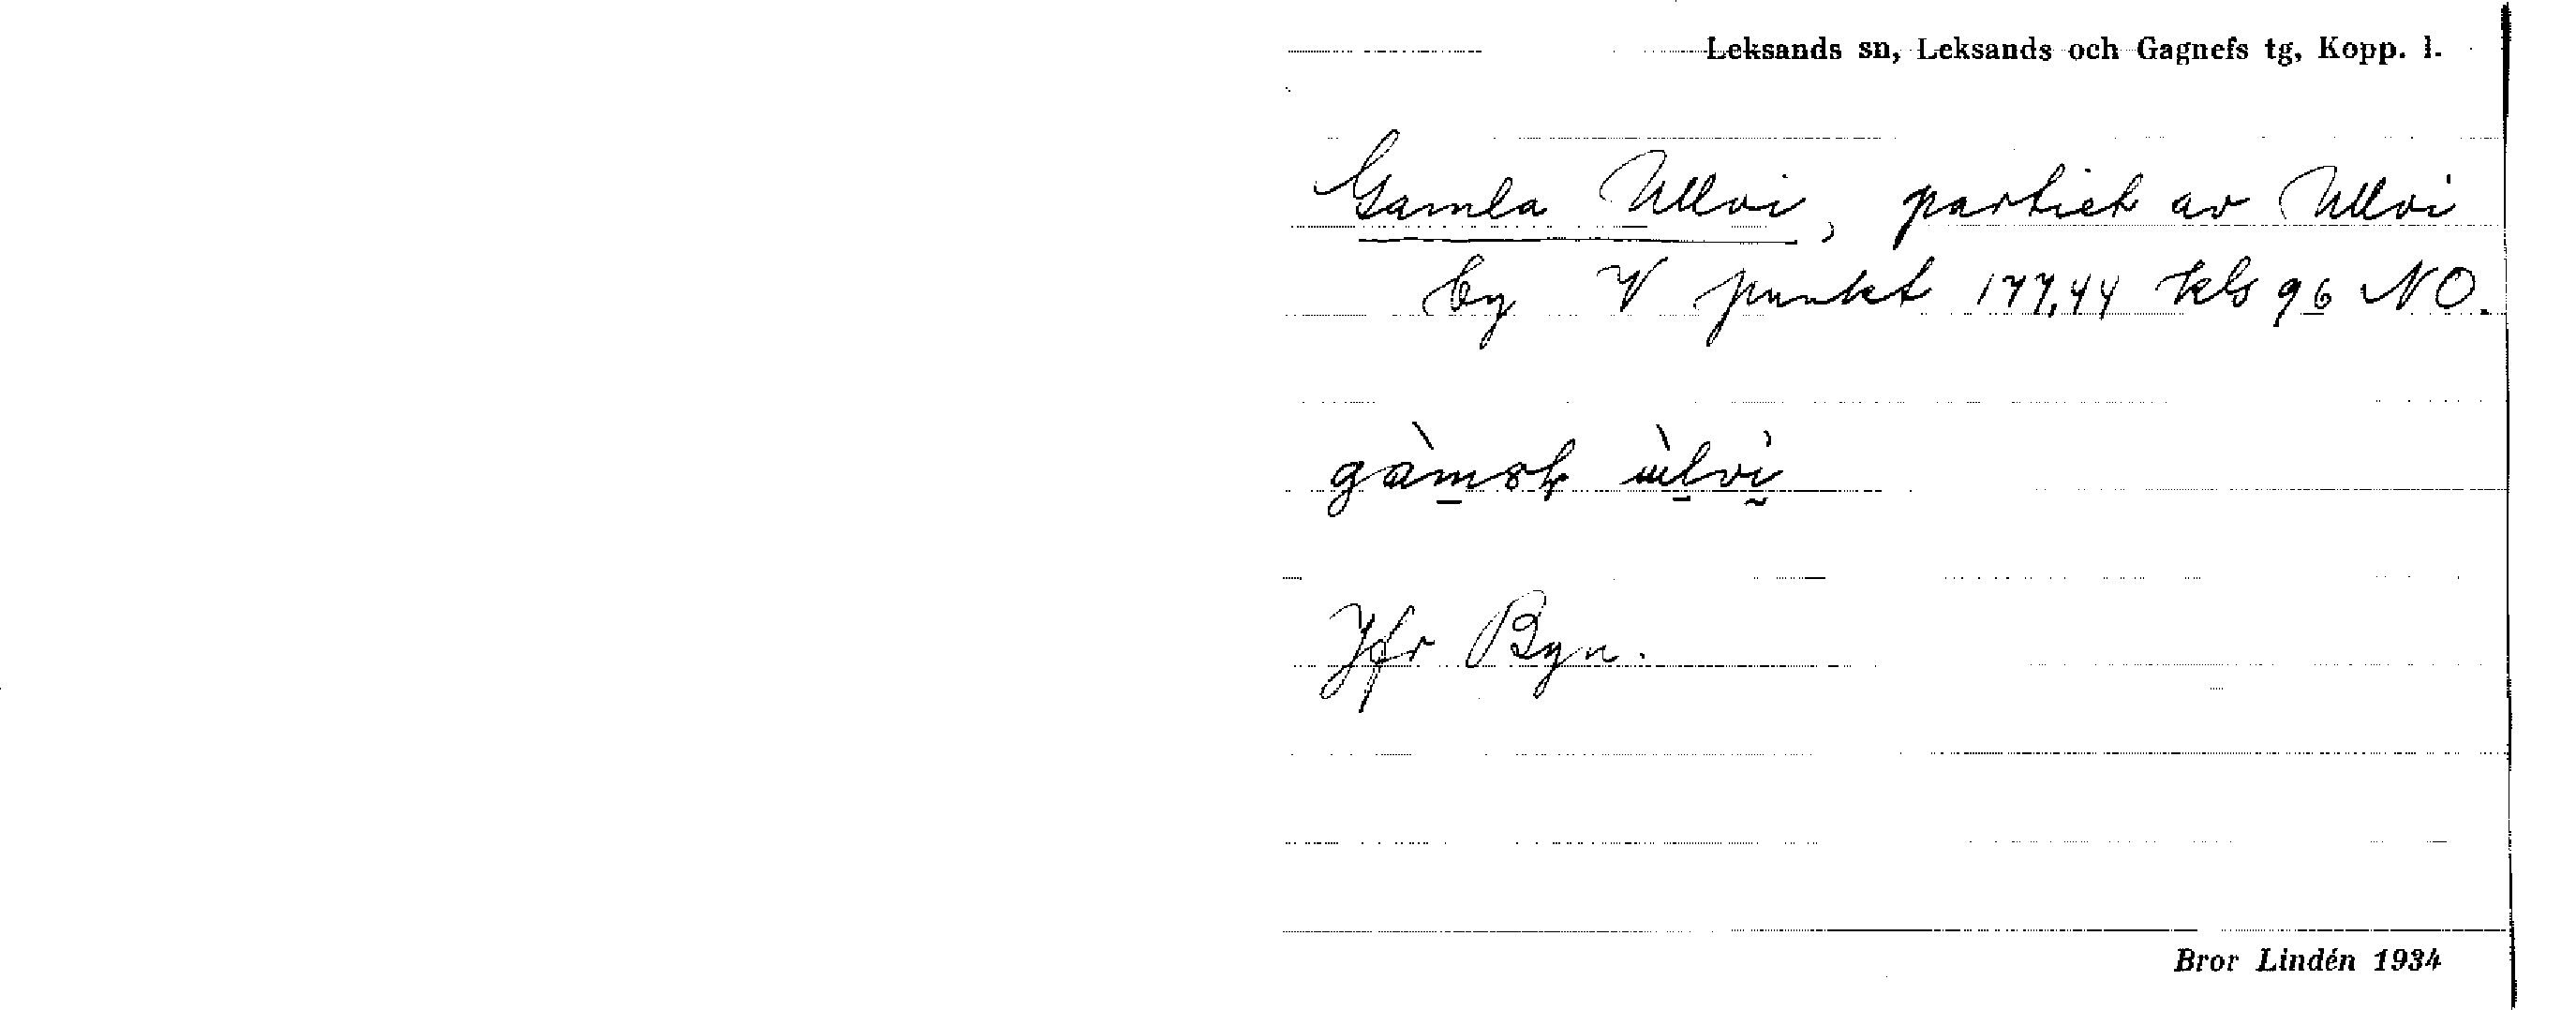 Leksands sn, Leksands och Gagnefs tg, Kopp. l.
Gamla Ullvi, partiet av Ullvi
by V punkt 177,44 kbl 96 NO.
Jfr Byn.
Bror Lindén 1934